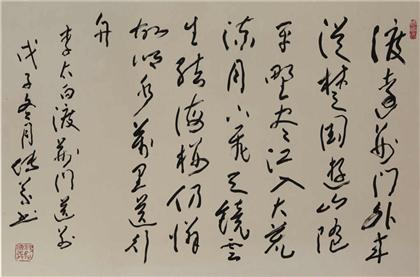 渡遠荊門外來
從楚國遊山隨
平野盡江入大荒
流月下飛天鏡雲
生結海樓仍憐
故鄉水萬里送行
舟
李太白渡荊門送別
戊子冬月書